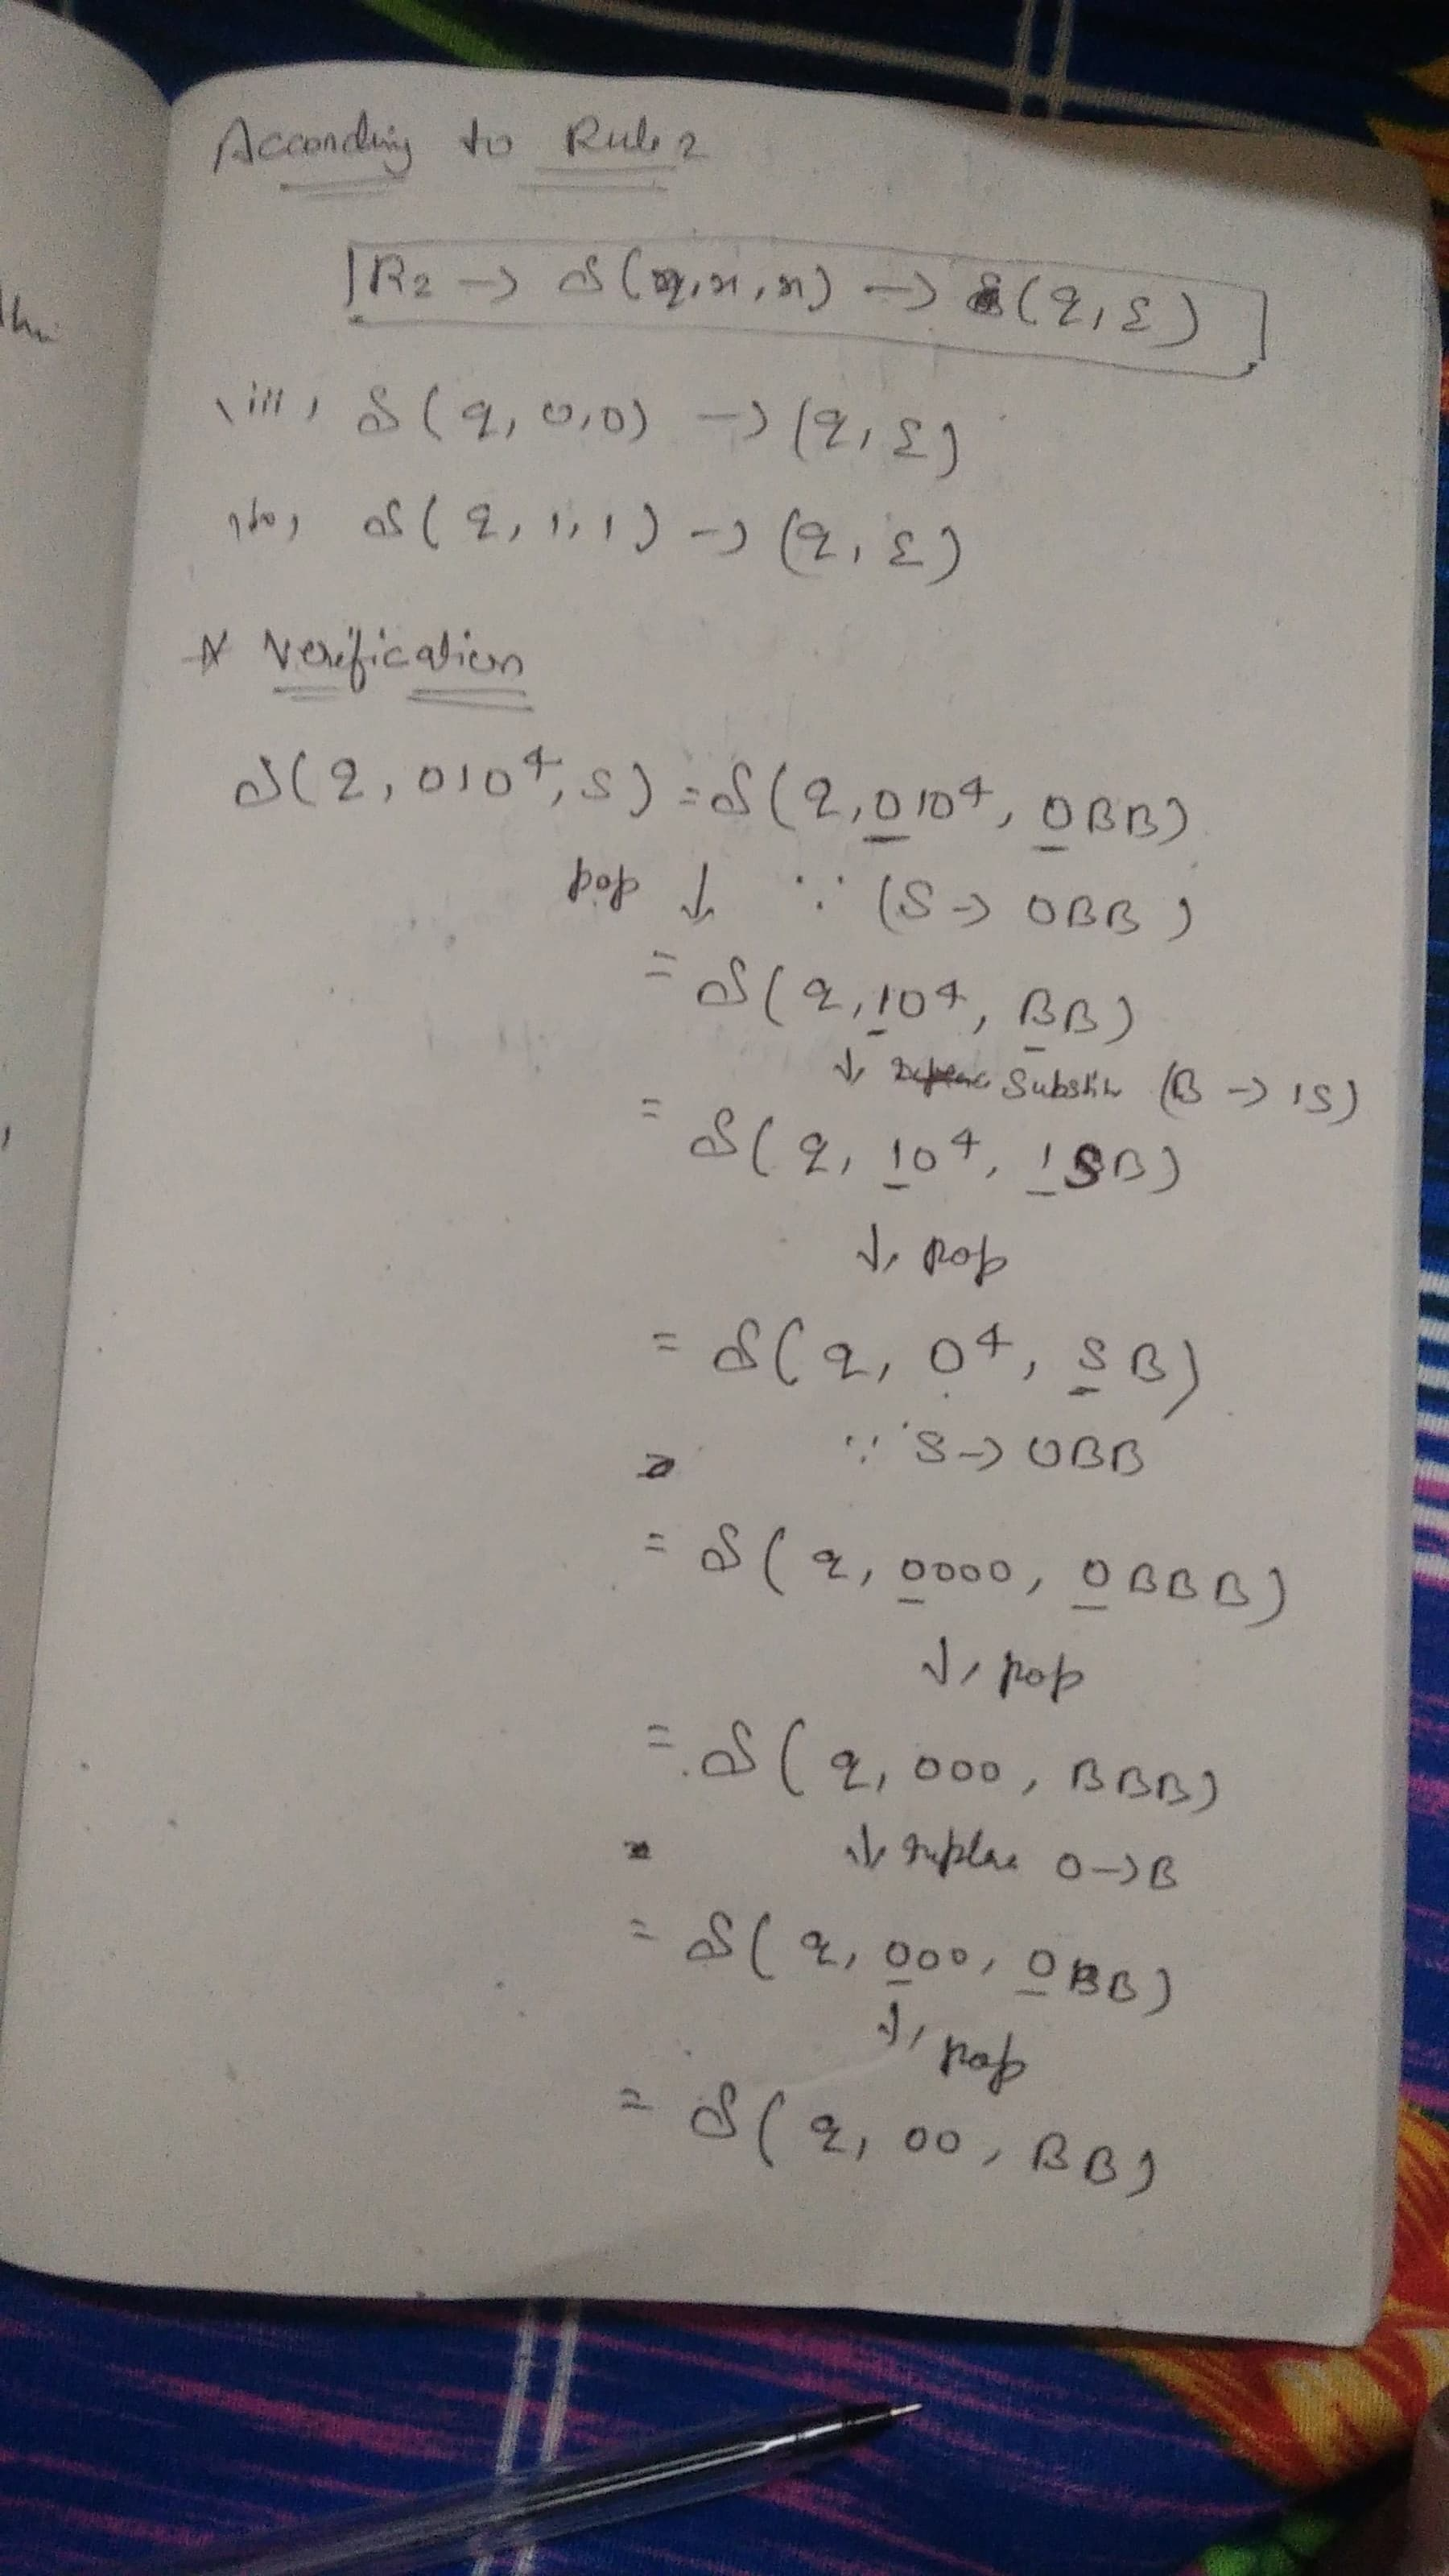 According to Rule 2
R2 → δ(q, x, x) → (q, ε)
iii, δ(q, 0,0) → (q, ε)
iv, δ(q, 1, 1) → (q, ε)
* Verification
δ(q, 010⁴, S) = δ(q, 010⁴, 0BB)
pop ↓ ∵ (S → 0BB)
= δ(q, 10⁴, BB)
↓ Substi (B → 1S)
= δ(q, 10⁴, 1SB)
↓, pop
= δ(q, 0⁴, SB)
∵ S → 0BB
= δ(q, 0000, 0BBB)
↓, pop
= δ(q, 000, BBB)
↓ replac 0 → B
= δ(q, 000, 0BB)
↓, pop
= δ(q, 00, BB)